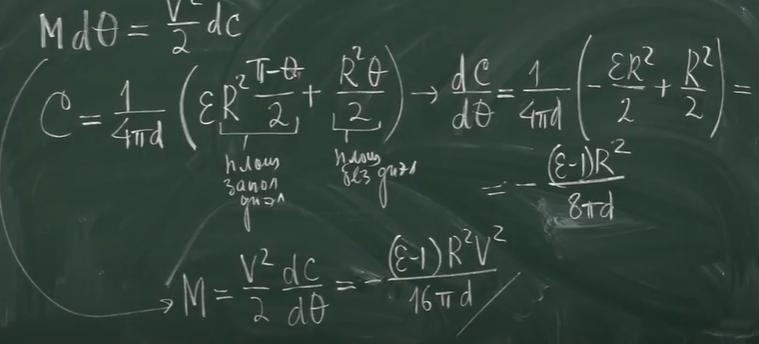 M dθ = V²/2 dC
C = 1/(4πd) (εR² (π-θ)/2 + R²θ/2) → dC/dθ = 1/(4πd) (- εR²/2 + R²/2) =
площ запол диэл
площ без диэл
= - (ε-1)R²/(8πd)
M = V²/2 dC/dθ = - (ε-1)R²V²/(16πd)